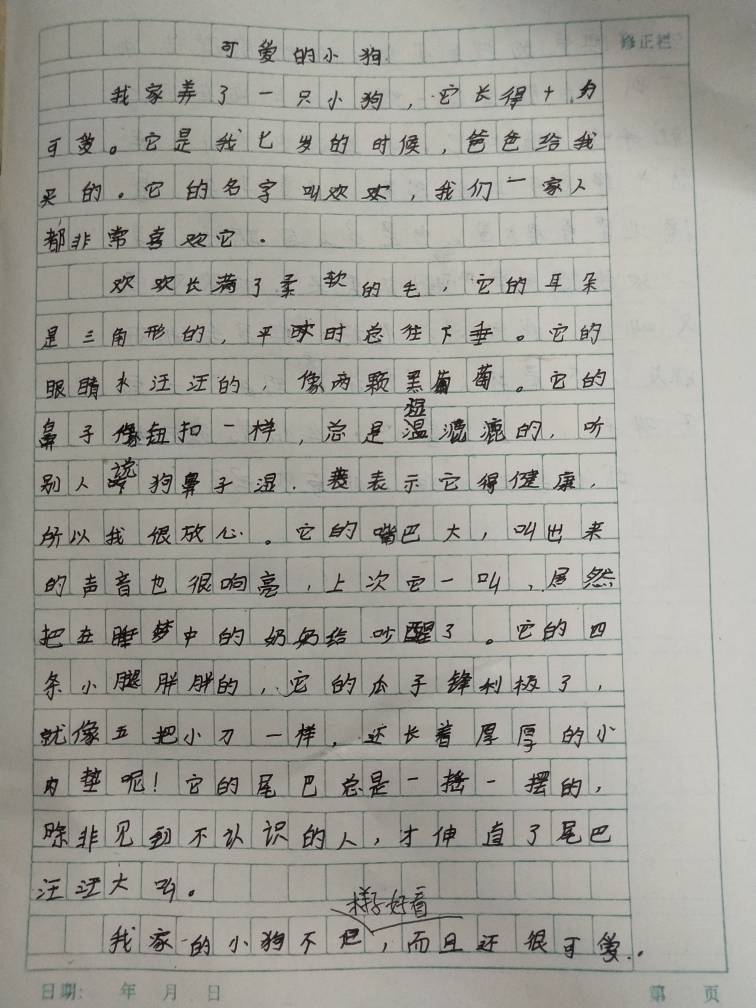 可爱的小狗
修正栏
我家养了一只小狗，它长得十分
可爱。它是我七岁的时候，爸爸给我
买的。它的名字叫欢欢，我们一家人
都非常喜欢它。
欢欢长满了柔软的毛，它的耳朵
是三角形的，平时总往下垂。它的
眼睛水汪汪的，像两颗黑葡萄。它的
湿
鼻子像钮扣一样，总是漉漉的，听
说
别人狗鼻子湿，表示它得健康，
所以我很放心。它的嘴巴大，叫出来
的声音也很响亮，上次它一叫，居然
把在睡梦中的奶奶给吵醒了。它的四
条小腿胖胖的，它的爪子锋利极了，
就像五把小刀一样，还长着厚厚的小
肉垫呢！它的尾巴总是一摇一摆的，
除非见到不认识的人，才伸直了尾巴
汪汪大叫。
样子好看
我家的小狗不但，而且还很可爱..
日期： 年 月 日
第 页